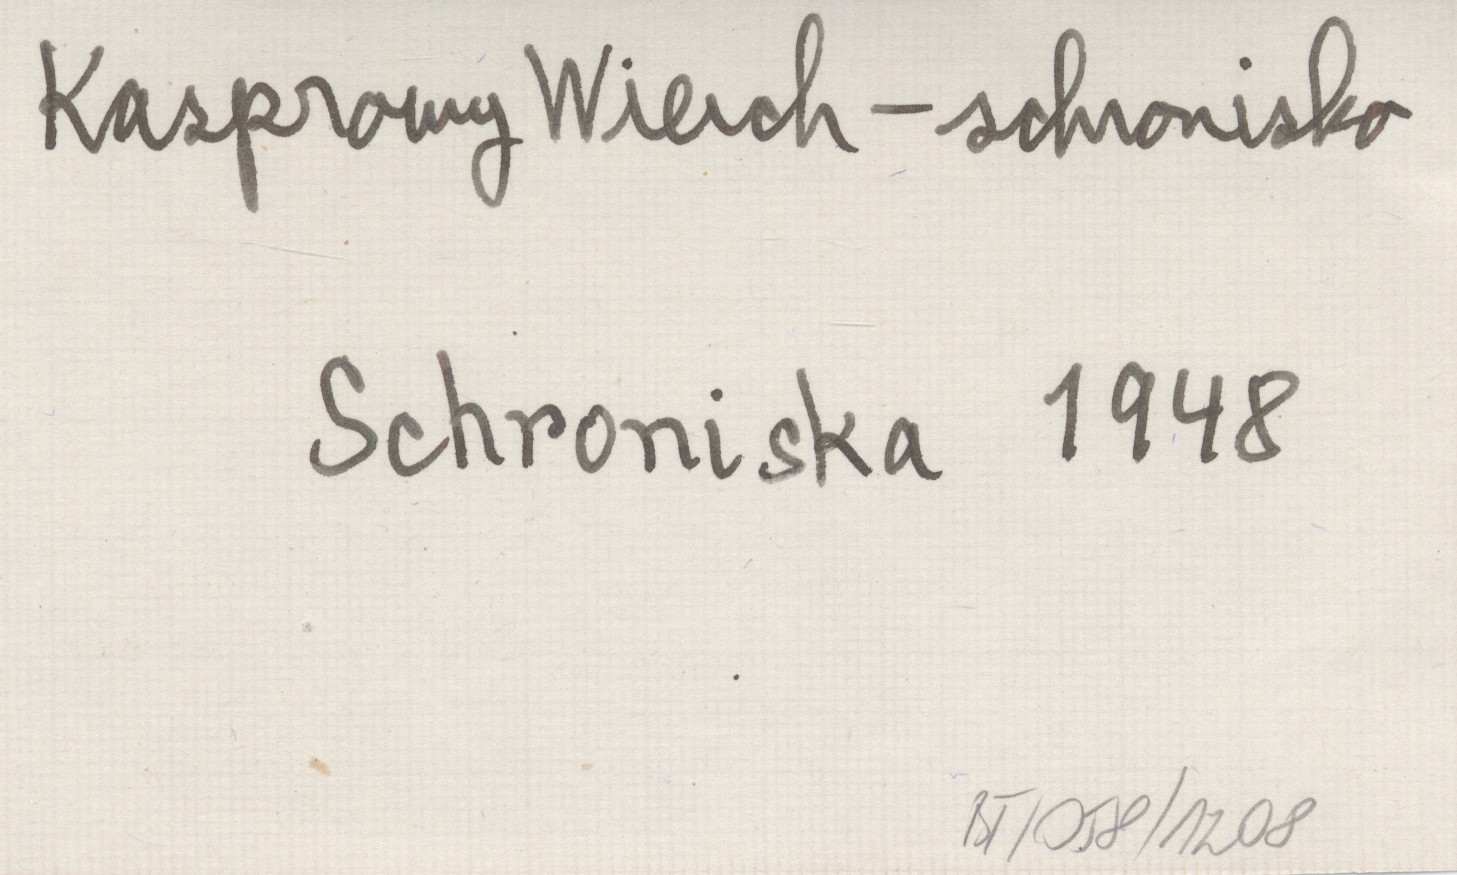 Kasprowy Wierch – schronisko
Schroniska 1948
BT/058/1208